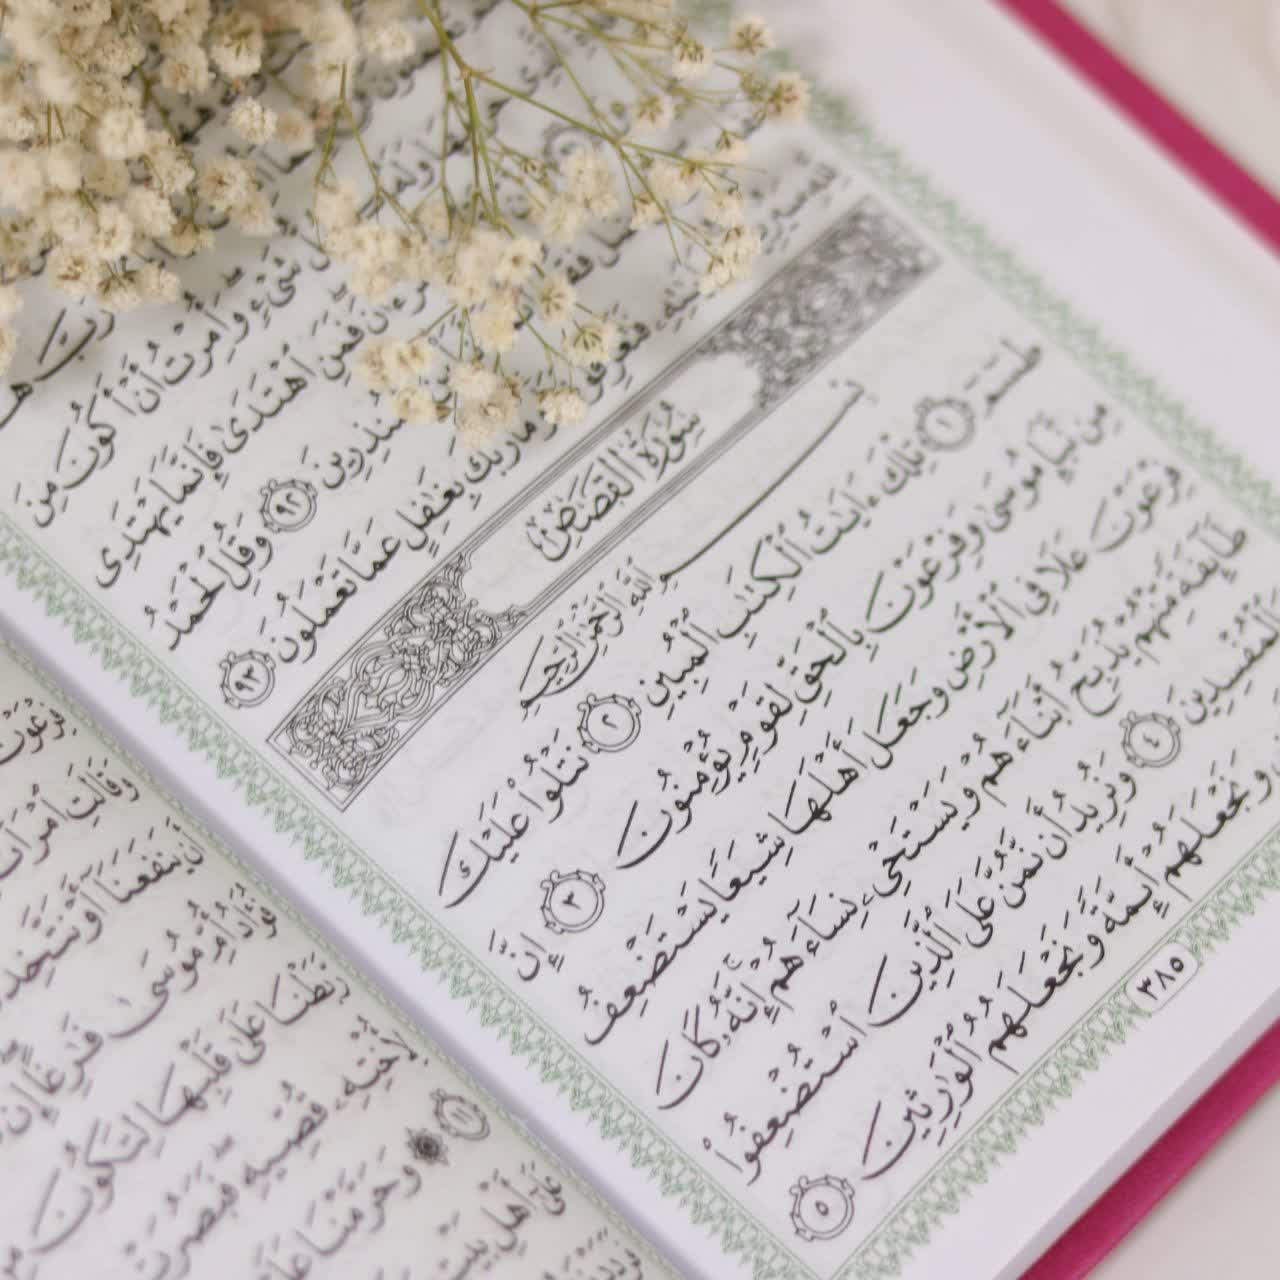 رَبَّ هَـ
شَيْءٍ وَأُمِرْتُ أَنْ أَكُونَ مِنَ
فَمَنِ ٱهْتَدَىٰ فَإِنَّمَا يَهْتَدِى
ٱلْمُنذِرِينَ ٩٢ وَقُلِ ٱلْحَمْدُ
فَتَعْرِفُونَهَا وَمَا رَبُّكَ بِغَٰفِلٍ عَمَّا تَعْمَلُونَ ٩٣
سُورَةُ القَصَصِ
بِسْمِ ٱللَّهِ ٱلرَّحْمَٰنِ ٱلرَّحِيمِ
طسٓمٓ ١ تِلْكَ ءَايَٰتُ ٱلْكِتَٰبِ ٱلْمُبِينِ ٢ نَتْلُوا۟ عَلَيْكَ
مِن نَّبَإِ مُوسَىٰ وَفِرْعَوْنَ بِٱلْحَقِّ لِقَوْمٍ يُؤْمِنُونَ ٣ إِنَّ
فِرْعَوْنَ عَلَا فِى ٱلْأَرْضِ وَجَعَلَ أَهْلَهَا شِيَعًا يَسْتَضْعِفُ
طَآئِفَةً مِّنْهُمْ يُذَبِّحُ أَبْنَآءَهُمْ وَيَسْتَحْىِۦ نِسَآءَهُمْ ۚ إِنَّهُۥ كَانَ
ٱلْمُفْسِدِينَ ٤ وَنُرِيدُ أَن نَّمُنَّ عَلَى ٱلَّذِينَ ٱسْتُضْعِفُوا۟
وَنَجْعَلَهُمْ أَئِمَّةً وَنَجْعَلَهُمُ ٱلْوَٰرِثِينَ ٥
٣٨٥
فِرْعَوْنَ
وَقَالَتِ ٱمْرَأَتُ
أَن يَنفَعَنَآ أَوْ نَتَّخِذَهُۥ
فُؤَادُ أُمِّ مُوسَىٰ فَٰرِغًا ۖ إِن
رَّبَطْنَا عَلَىٰ قَلْبِهَا لِتَكُونَ مِنَ
لِأُخْتِهِۦ قُصِّيهِ ۖ فَبَصُرَتْ
١١ وَحَرَّمْنَا عَلَيْهِ
عَلَىٰٓ أَهْلِ بَيْتٍ